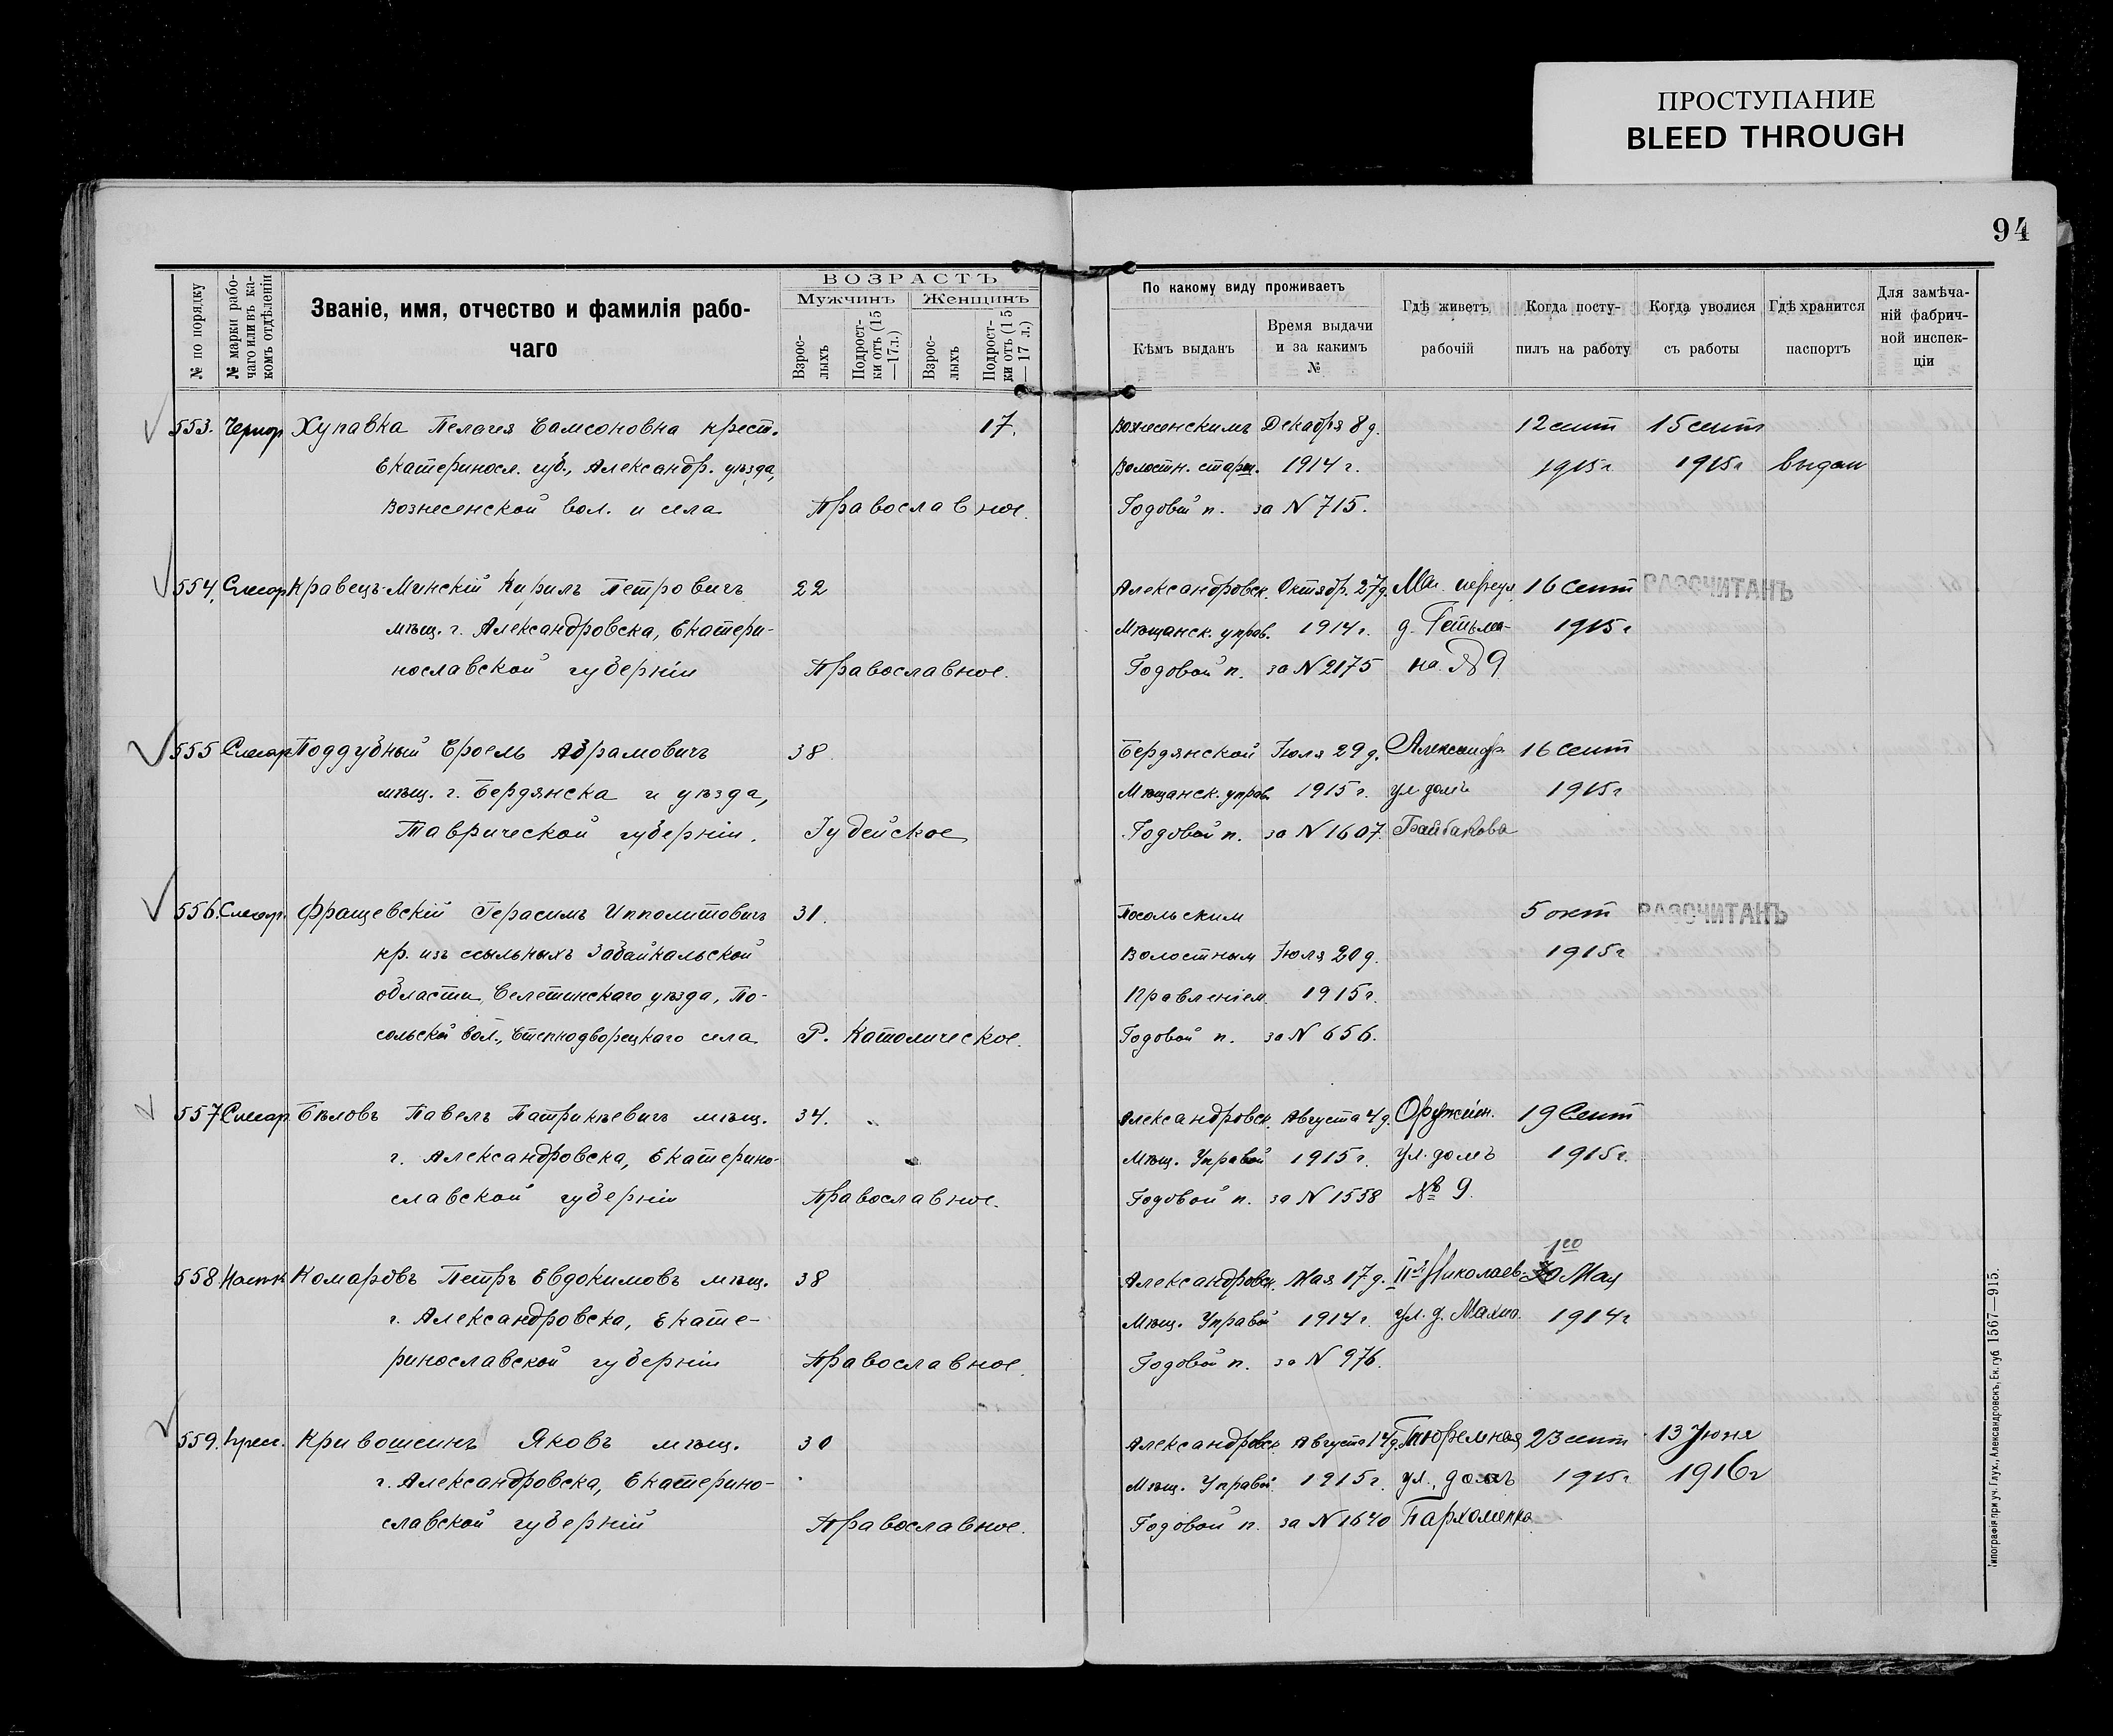 ПРОСТУПАНИЕ
BLEED THROUGH
94
№ по порядку
№ марки рабо-
чаго или въ ка-
комъ отдѣленіи
Званіе, имя, отчество и фамилія рабо-
чаго
ВОЗРАСТЪ
Мужчинъ
Женщинъ
Взрос-
лыхъ
Подрост-
ки отъ (15
—17л.)
Взрос-
лыхъ
Подрост-
ки отъ (15
—17 л.)
По какому виду проживаетъ
Кѣмъ выданъ
Время выдачи
и за какимъ
№
Гдѣ живетъ
рабочій
Когда посту-
пилъ на работу
Когда уволися
съ работы
Гдѣ хранится
паспортъ
Для замѣча-
ній фабрич-
ной инспек-
ціи
553. Чернор Хупавка Пелагея Самсоновна крест. 17. Вознесенскимъ Декабря 8 д. 12 сент 15 сент
Екатериносл. губ., Александр. уѣзда, Волостн. старш. 1914 г. 1915 г 1915 г выдан
Вознесенской вол. и села Православное. Годовой п. за N 715.
554. Слесар Кравецъ-Минскій Кирилъ Петровичъ 22 Александровск. Октябр. 27 д. Мал. 16 сент РАЗСЧИТАНЪ
мѣщ. г. Александровска, Екатери- Мѣщанск. управ. 1914 г. д. Гетьма- 1915 г
нославской губерніи Православное. Годовой п. за N 2175 на № 9
555 Слесар Поддубный Сроель Абрамовичъ 38. Бердянской Іюля 29 д. Александр. 16 сент
мѣщ. г. Бердянска и уѣзда, Мѣщанск. управ. 1915 г. ул домъ 1915 г
Таврической губерніи. Іудейское Годовой п. за N 1607. Байбакова
556. Слесар. Фращевскій Герасимъ Ипполитовичъ 31. Посольским 5 окт РАЗСЧИТАНЪ
кр. изъ ссыльныхъ Забайкальской Волостным Іюля 20 д. 1915 г
области, Селетинскаго уѣзда, По- Правленіем 1915 г.
сольской вол., Степнодворецкаго села Р. Католическое. Годовой п. за N 656.
557 Слесар Бѣловъ Павелъ Патрикѣевичъ мѣщ. 34. Александровск. Августа 4 д. Оружейн. 19 Сент
г. Александровска, Екатерино- Мѣщ. Управой 1915 г. ул. домъ 1915 г.
славской губерніи Православное. Годовой п. за N 1558 № 9.
1го
558 Комаровъ Петръ Евдокимовъ мѣщ. 38 Александровск. Мая 17 д. II Николаев. Мая
г. Александровска, Екате- Мѣщ. Управой 1914 г. ул. д. Махно. 1914 г
ринославской губерніи Православное. Годовой п. за N 976.
559. Кривошеинъ Яковъ мѣщ. 30 Александровск. Августа 14 д. Тюремная 23 сент 13 Іюня
г. Александровска, Екатерино- Мѣщ. Управой. 1915 г. ул., домъ 1915 г 1916 г
славской губерній Православное. Годовой п. за N 1640 Пархоменко
Типографія при уч. Глух., Александровскъ, Ек. губ 1567—915.